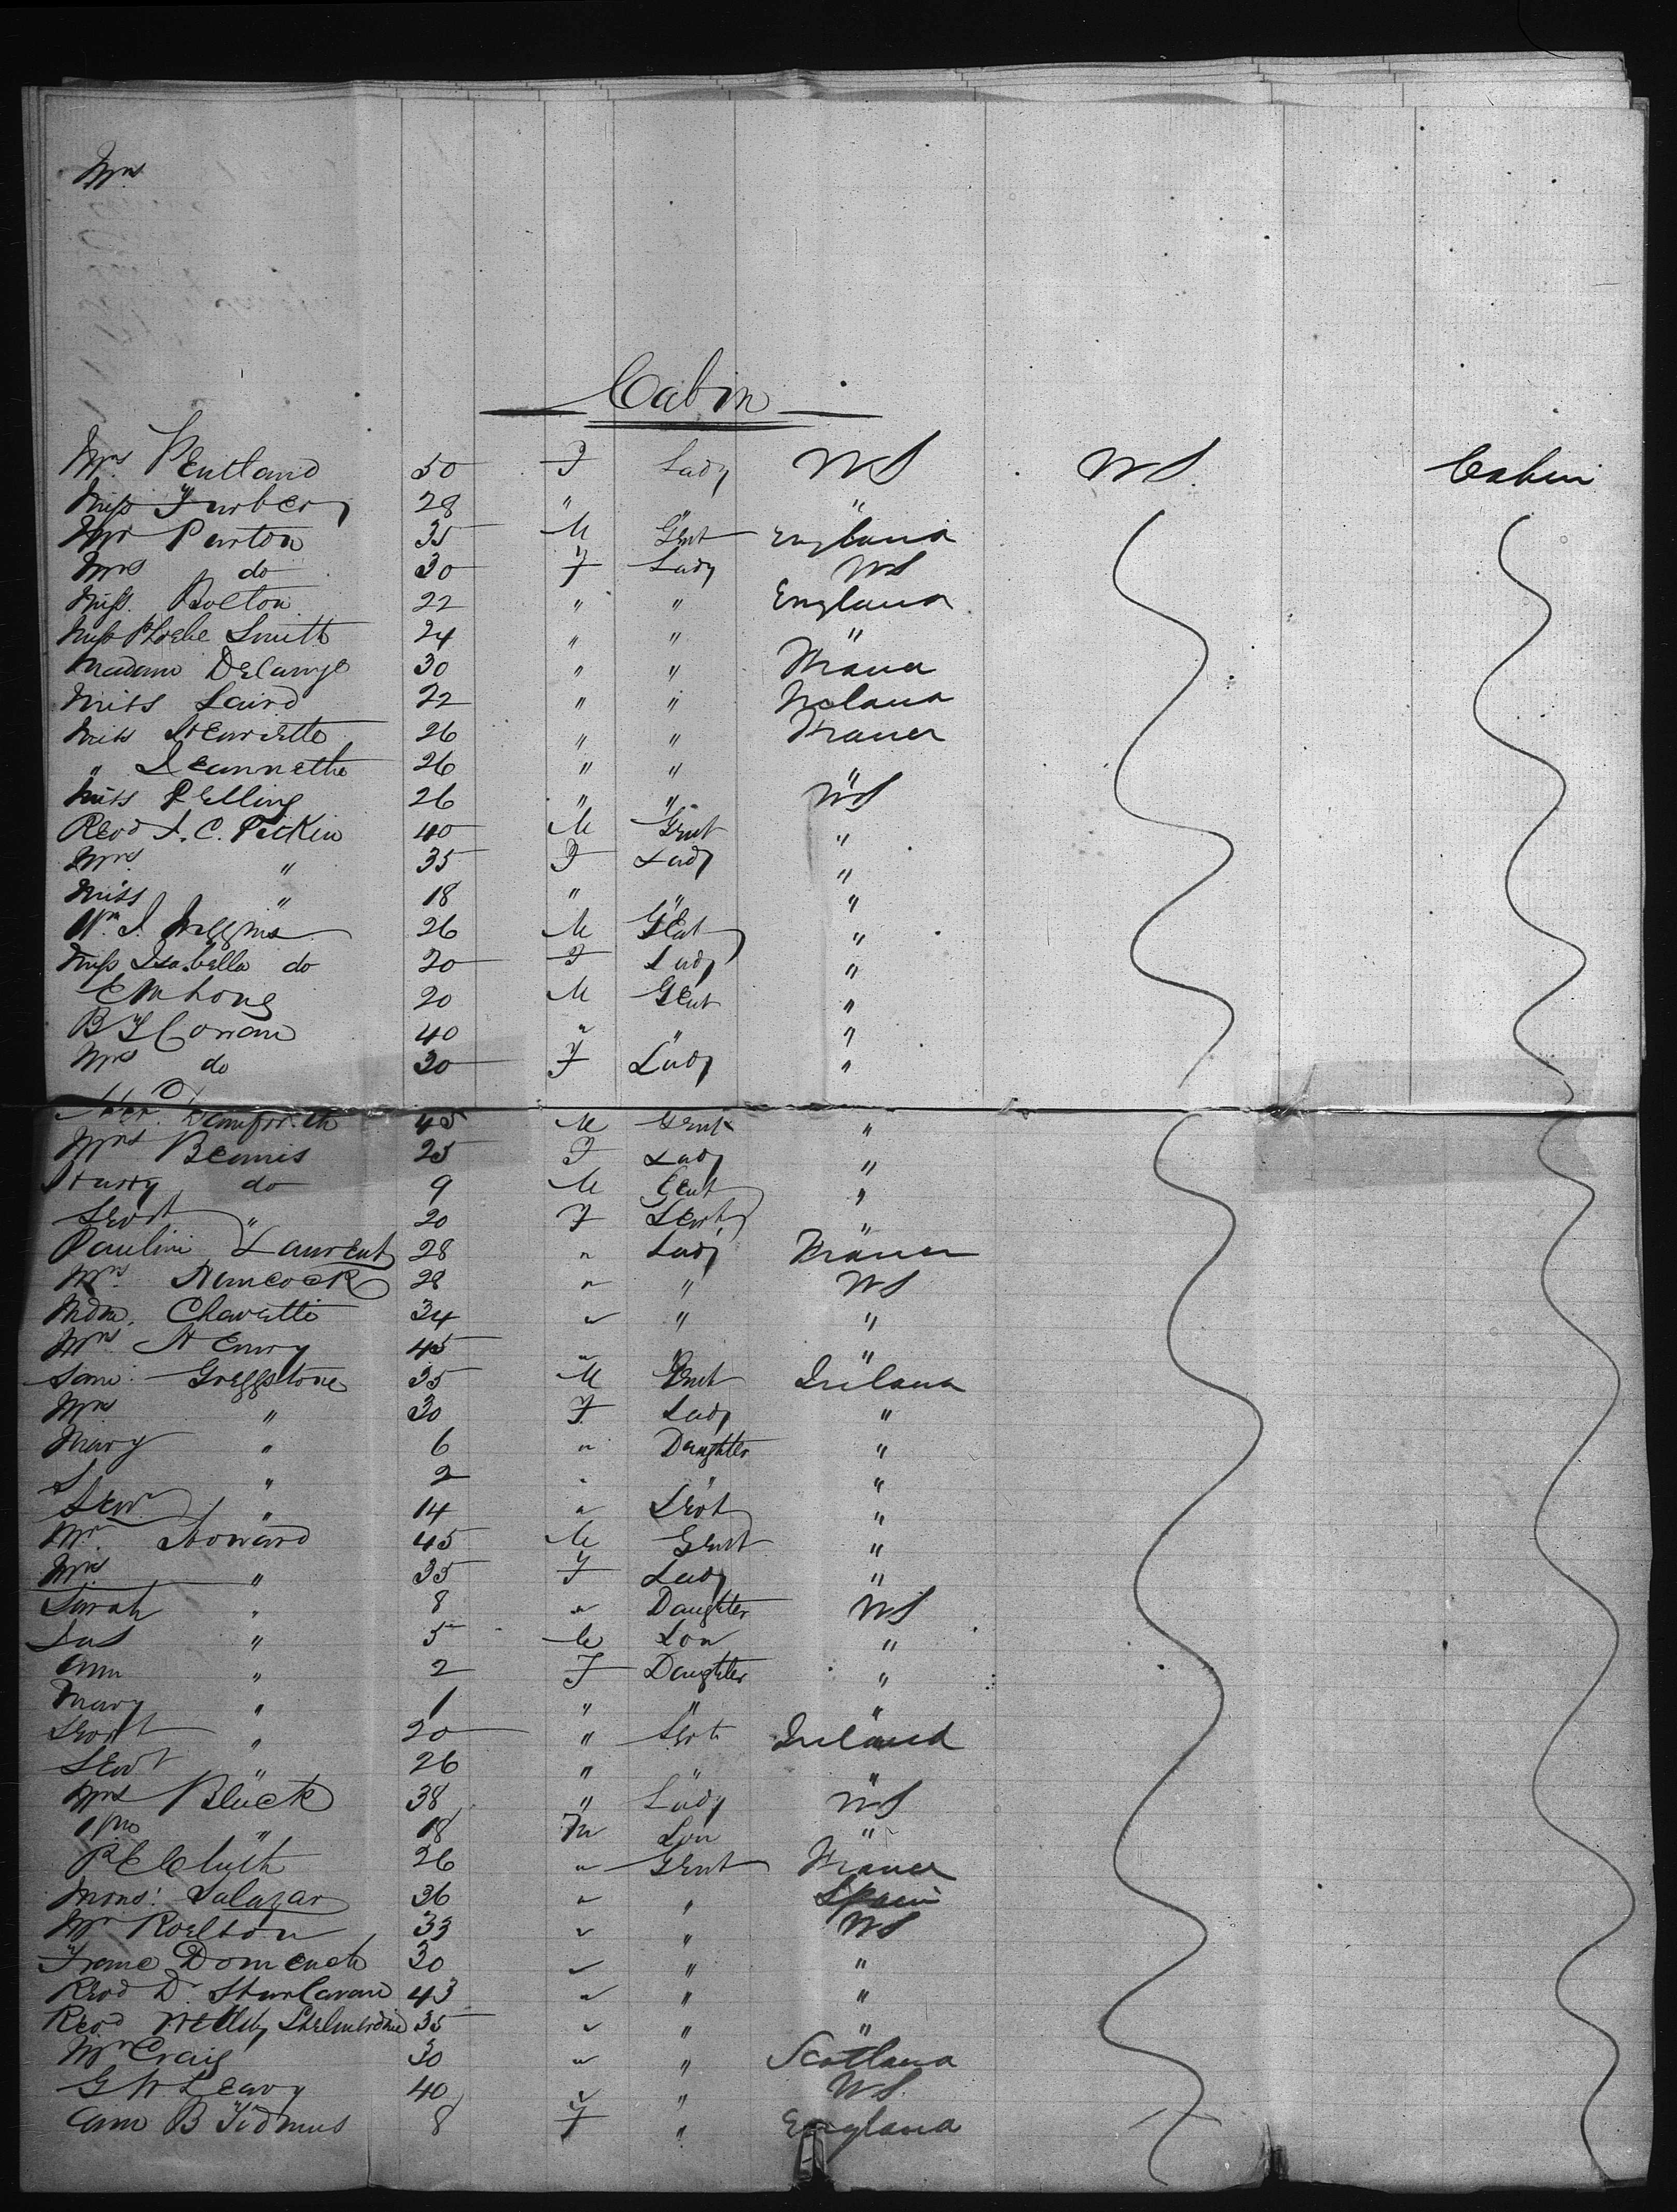 Mrs
Cabin
Mrs Pentland 50 F Lady US US Cabin
Miss Furber 28 " " "
Mr Purton 35 M Gent England
Mrs do 30 F Lady US
Miss Bolton 22 " " England
Miss Phoebe Smith 24 " " "
Madam DeLange 30 " " France
Miss Laird 22 " " Ireland
Miss Henriette 26 " " France
" Jeannethe 26 " " "
Miss Pelling 26 " " US
Revd I. C. Pitkin 40 M Gent "
Mrs " 35 F Lady "
Miss " 18 " " "
Wm J. 26 M Gent "
Miss Isabella do 20 F Lady "
E M Long 20 M Gent "
B F Cowan 40 " " "
Mrs do 30 F Lady "
Danforth 45 M Gent "
Mrs Beamis 25 F Lady "
Harry do 9 M Gent "
Servt " 20 F Servt "
Pauline Laurent 28 " Lady France
Mrs Hancock 28 " " US
Mdm. Chavette 34 " " "
Mrs Henry 45 " " "
Saml Greggstone 35 M Gent Ireland
Mrs " 30 F Lady "
Mary " 6 " Daughter "
S " 2 " " "
Serv " 14 " Servt "
Mr Howard 45 M Gent "
Mrs " 35 F Lady "
Sarah " 8 " Daughter US
Jas " 5 M Son "
Ann " 2 F Daughter "
Mary " 1 " " "
Servt " 20 " Servt Ireland
Servt " 26 " " "
Mrs Bluck 38 " Lady US
Jno " 18 M Son "
26 " Gent France
Mons: Salazar 36 " " Spain
Mr Roelton 33 " " US
Franc Domench 30 " " "
Revd Dr 43 " " "
Revd 35 " " "
Mr Craig 30 " " Scotland
G W Leavy 40 " " US
Ann B Tidmus 8 F " England